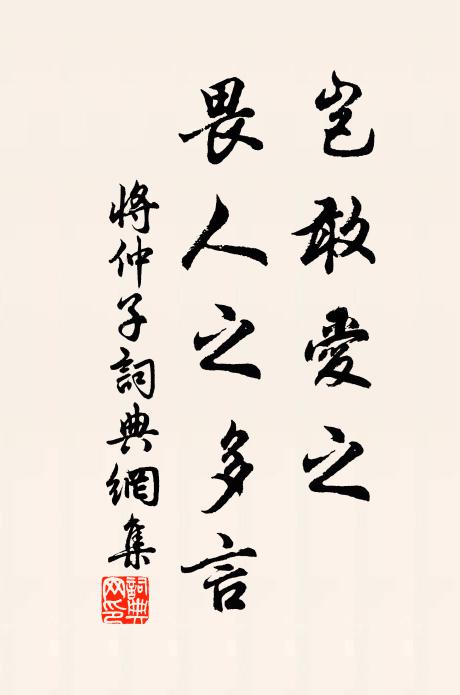 豈敢愛之
畏人之多言
將仲子詞典網集
詞典
网印